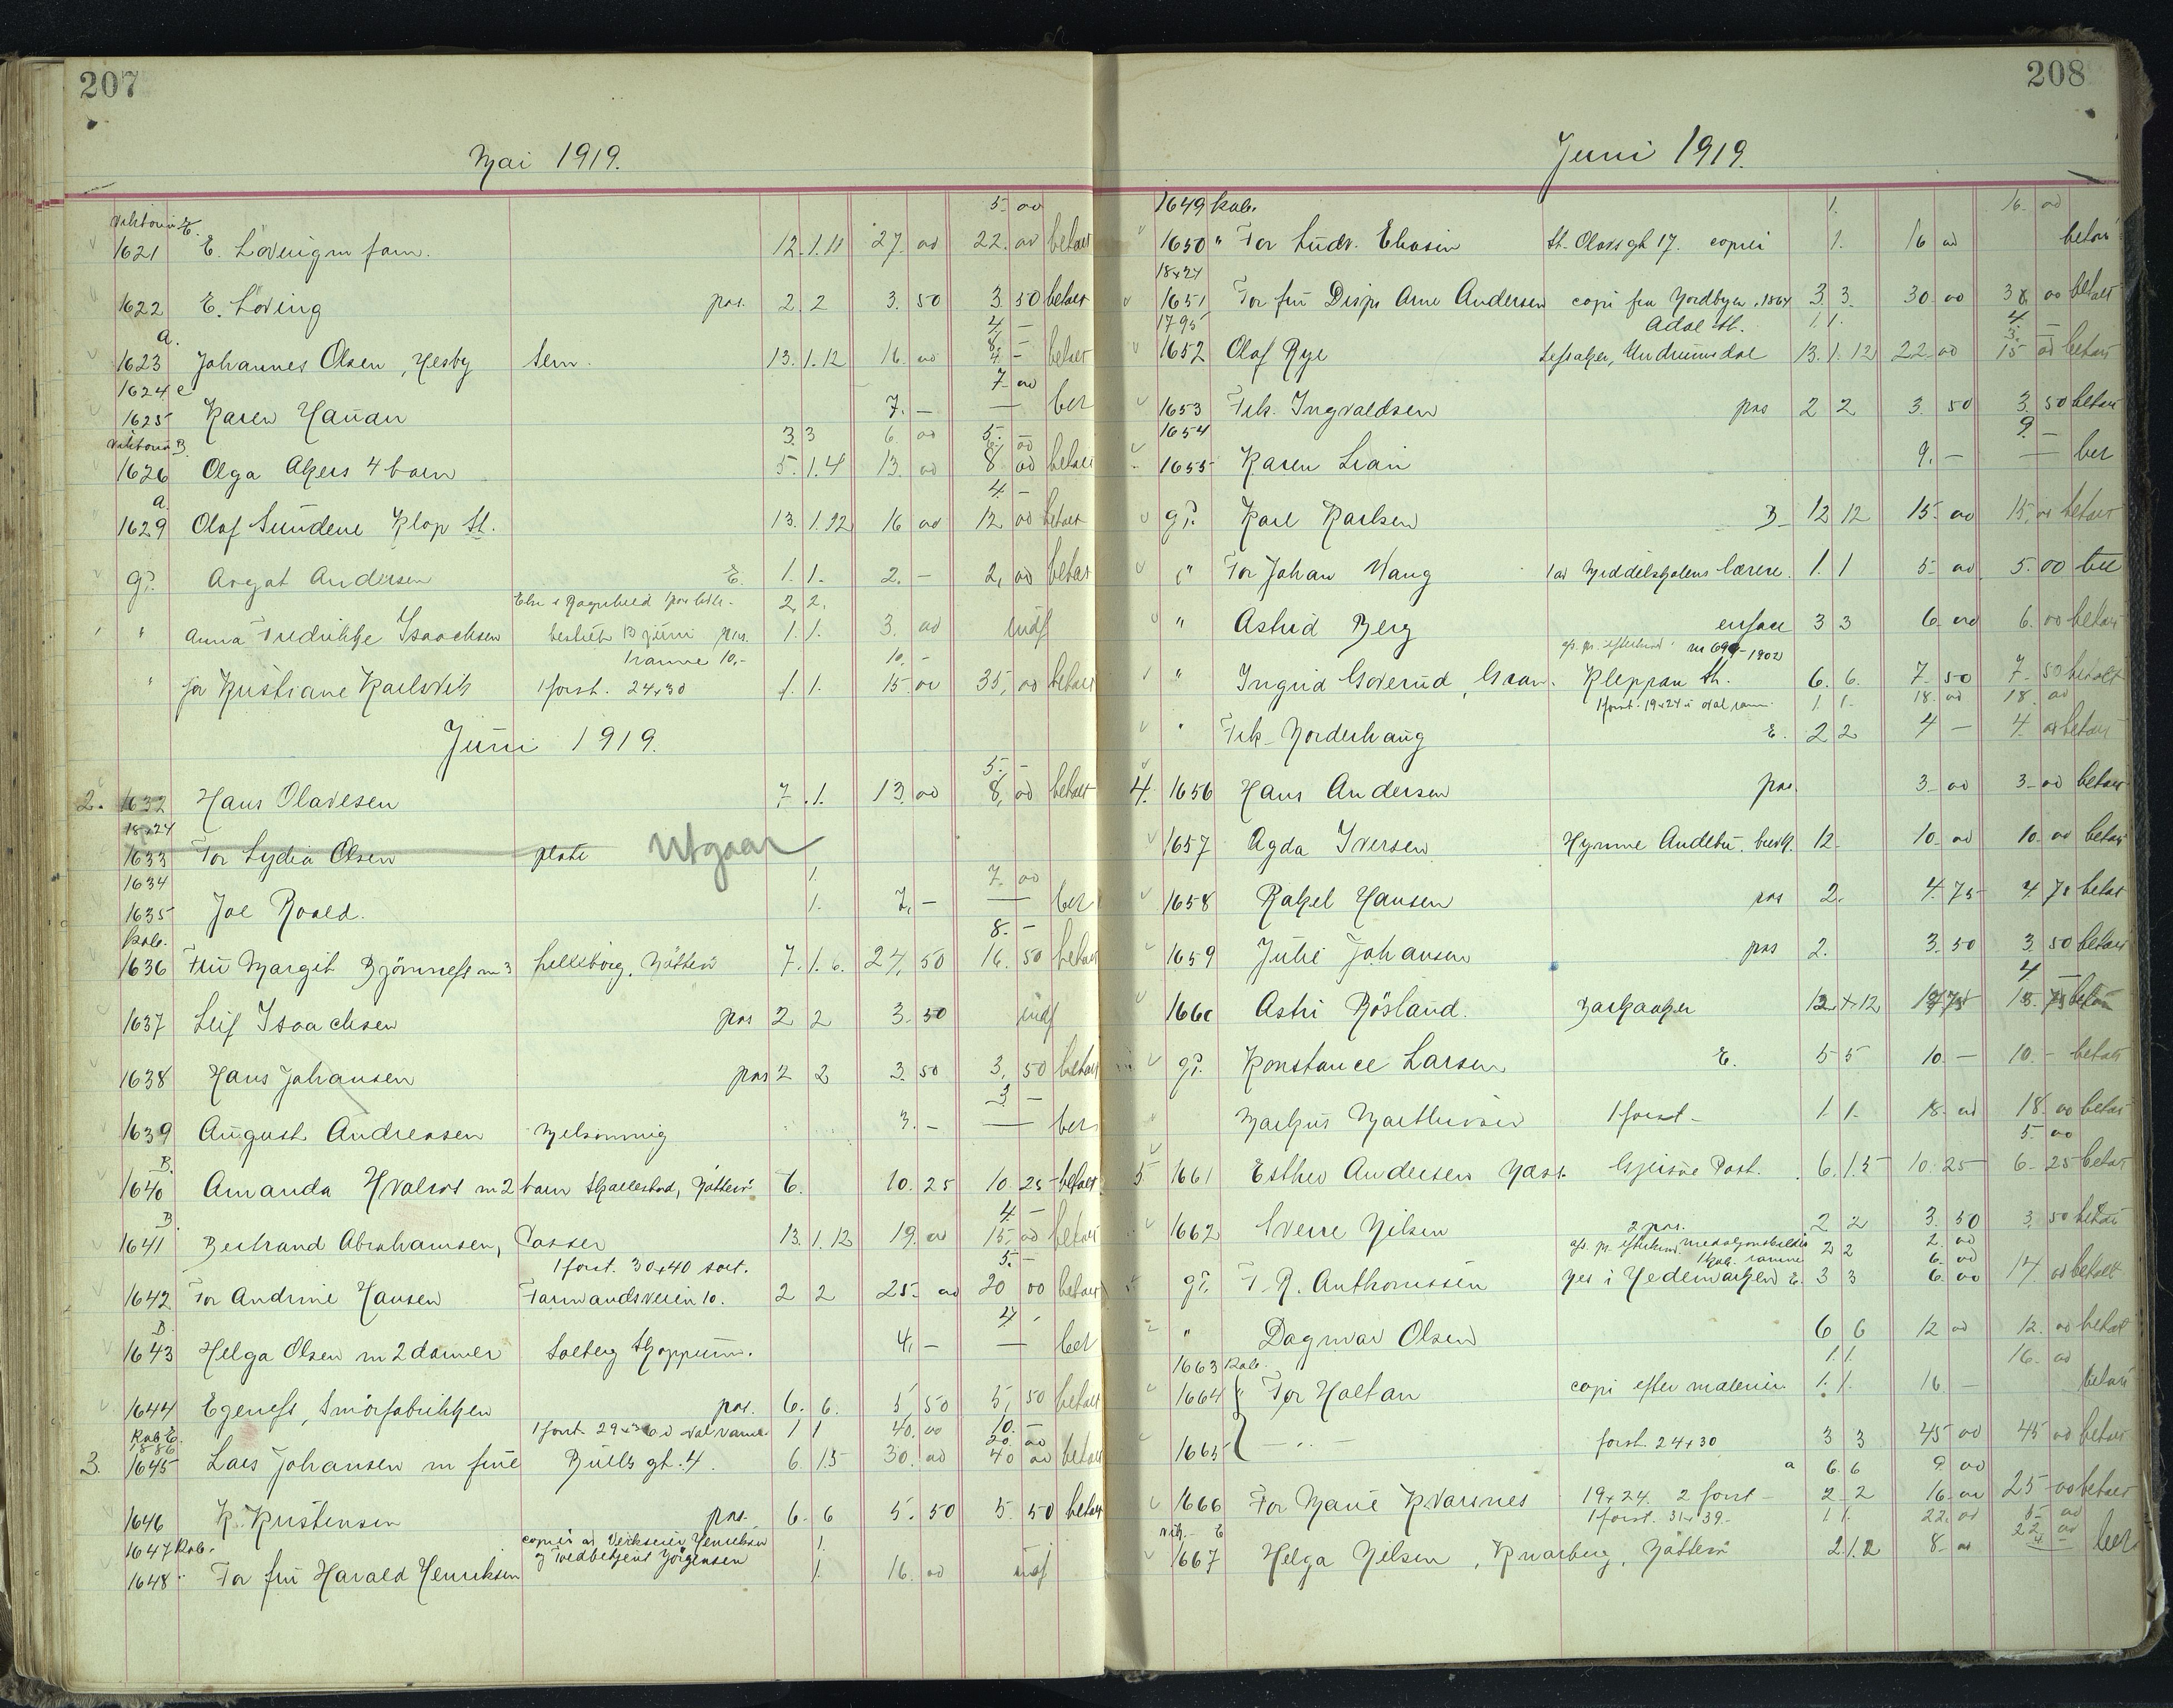 207
Mai 1919.
5. 00
Viktoria E.
1621 E. Lövingm fam. 12.1.11 27. 00 22. 00 betalt
1622 E. Löving pos. 2. 2 3. 50 3. 50 betalt
a. 4 -
8. -
1623 Johannes Olsen, Hesby Sem. 13.1.12 16. 00 4 - betalt
1624 e 7. 00
1625 Karen Hauan 7. - — ber
Viktoria B. 3. 3 6. 00 5. 00
1626 Olga Akers 4 barn 5. 1. 4 13. 00 8. 00 betalt
a. 4 -
1629 Olaf Sundene Klop St. 13. 1. 12 16 00 12 00 betalt
gl. Aagot Andersen E. 1. 1. 2. - 2. 00 betalt
Else & Ragnhild 2. 2.
" Anna Fredrikke Isaachsen bestilt 13 juni pos. 1. 1. 3. 00 indf
1 ramme 10,- 10. -
" for Kristiane Karlsvik 1 forst. 24x30 1. 1. 15. 00 35, 00 betalt
Juni 1919.
5. -
2. 1632 Hans Olavesen 7. 1. 13. 00 8, 00 betalt
18x24
1633 For Lydia Olsen plate Utgaar
1634 1. 7. 00
1635 Joe Roald. 1. 7, - — ber
Kab. 8. -
1636 Fru Margit Björnness m 3 Lilleborg, Nötterö 7. 1. 6. 24, 50 16. 50 betalt
1637 Leif Isaachsen pos 2 2 3. 50 indf
1638 Hans Johansen pos 2 2 3. 50 3, 50 betalt
3 -
1639 August Andreasen Melsomvig 3. - — ber
B.
1640 Amanda Hvalsos m 2 barn Skallestad, Nötterö 6. 10. 25 10. 25 betalt
B. 4 -
1641 Bertrand Abrahamsen, Dasser 13. 1. 12 19. 00 15, 00 betalt
1 forst. 30x40 sort. 5. -
1642 For Andrine Hansen Farmandsveien 10. 2 2 25. 00 20 00 betalt
B. 4 -
1643 Helga Olsen m 2 damer Solberg Skoppum. 4, - — ber
1644 Egeness, Smörfabrikken pos. 6. 6. 5, 50 5, 50 betalt
Kab E. 1 forst. 29x36 oval ramme 1 1 40. 00 10. -
1886 20. 00
3. 1645 Lars Johansen m frue Bulls gt. 4. 6. 1.5 30. 00 40 00 betalt
1646 K. Kristensen pos. 6. 6 5. 50 5. 50 betalt
1647 Kab. copier av Verkseier Henriksen 1.
og Toldbetjent Jörgensen
1648 " For fru Harald Henriksen 1. 16. 00 indf
208
Juni 1919.
1649 Kab. 1. 16. 00
1650 " For Ludv. Eliasen St. Olavsgt 17. copier 1. 16 00 betalt
18x24
1651 For fru Disp. Arne Andersen copi fra Nordbyen 1864 3 3. 30. 00 38 00 betalt
1795 Adal St. 1. 1. 4 -
3. -
1652 Olaf Rye Lefsaker, Undrumsdal 13. 1. 12 22 00 15 00 betalt
1653 Frk. Ingvaldsen pos 2 2 3. 50 3. 50 betalt
1654 9. -
1655 Karen Lian 9. - — ber
gl. Karl Karlsen B 12 12 15 00 15, 00 betalt
" For Johan Haug 1 av Middelskolens lærere. 1. 1 5. 00 5. 00 bet
" Astrid Berg 3 3 6. 00 6. 00 betalt
gl. pl. efterbest. nr 694-1902
" Ingrid Goverud, Gran. Kleppan St. 6. 6. 7 50 7. 50 betalt
1 forst. 19x24 i oval ram. 1. 1. 18. 00 18. 00
" Frk. Norderhaug E. 2 2 4 - 4. 00 betalt
4. 1656 Hans Andersen pos. 3. 00 3. 00 betalt
1657 Agda Iversen Hynne Andebu. brevk. 12. 10. 00 10. 00 betalt
1658 Rakel Hansen pos 2. 4. 75 4. 75 betalt
1659 Julie Johansen pos 2. 3. 50 3. 50 betalt
4 -
1660 Astri Rösland. Barkaaker 12 + 12 betalt
gl. Konstance Larsen E. 5 5 10. - 10. - betalt
Markus Marthinsen 1 forst - 1. 1. 18. 00 18. 00 betalt
5. 00
5 1661 Esther Andersen Næss. Gjeisöe Post. 6. 1. 5 10. 25 6. 25 betalt
1662 Sverre Nilsen 2 pos. 2 2 3. 50 3. 50 betalt
gl. pl. efterbest. medaljonsbilde 2 2 2. 00
1 kab. ramme 6. 00
gl. T. R. Anthonissen Nes i Hedemarken E. 3 3 6. 00 14. 00 betalt
" Dagmar Olsen 6 6 12 00 12. 00 betalt
1663 Kab. 1. 1. 16. 00
1664 " For Holtan copi efter maleri 1. 1. 16 - betalt
1665 — " — forst. 24x30 3 3 45 00 45 00 betalt
a 6. 6 9. 00
1666 For Marie Kvarnes 19x24. 2 forst - 2 2 16. 00 25 00 betalt
1 forst. 31x39. - 1 1. 22. 00
vik. - E 22. 00
1667 Helga Nilsen, Knarberg, Nötterö 2. 1. 2 8. 00 4 - ber